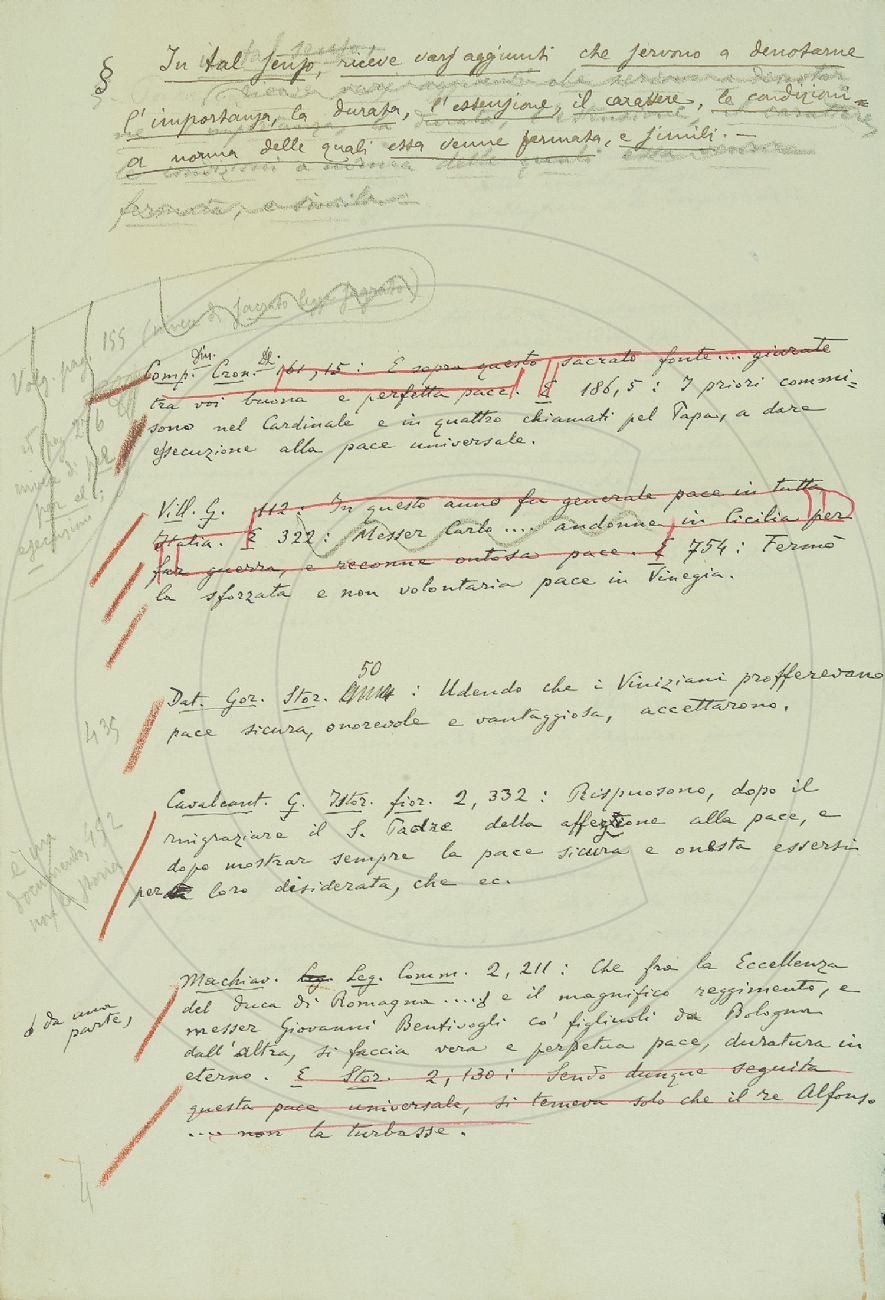 § In tal senso, riceve varj aggiunti che servono a denotarne
l'importanza, la durata, l'estensione, il carattere, le condizioni
a norma delle quali essa venne fermata, e simili. —
fermata, e simili. —
Vocg. pag. 155 (invece di sacrato leggi sagrato)
Comp. Din. Cron. D. 161, 15: E sopra questo sacrato fonte .... giurate
tra voi buona e perfetta pace. E 186, 5: I priori commi=
sono nel Cardinale e in quattro chiamati pel Papa, a dare
essecuzione alla pace universale.
pag 276
invece di pel
per el;
esecuzioni
Vill. G. 112: In questo anno fu generale pace in tutta
Italia. E 322: Messer Carlo .... andonne in Cicilia per
far guerra, e reconne ontosa pace. E 754: Fermò
la sforzata e non volontaria pace in Vinegia.
50
Dat. Gor. Stor. : Udendo che i Viniziani profferevano
pace sicura, onorevole e vantaggiosa, accettarono.
435
Cavalcant. G. Istor. fior. 2, 332: Rispuosono, dopo il
ringraziare il S. Padre della affezione alla pace, e
dopo mostrar sempre la pace sicura e onesta essersi
per loro disiderata, che ec.
documento, 492
non la storia
Machiav. Leg. Leg. Comm. 2, 211: Che fra la Eccellenza
del Duca di Romagna .... e il magnifico reggimento, e
messer Giovanni Bentivogli co' figliuoli da Bologna
dall'altra, si faccia vera e perpetua pace, duratura in
eterno. E Stor. 2, 130: Sendo dunque seguita
questa pace universale, si temeva solo che il re Alfonso
.... non la turbasse.
da una
parte,